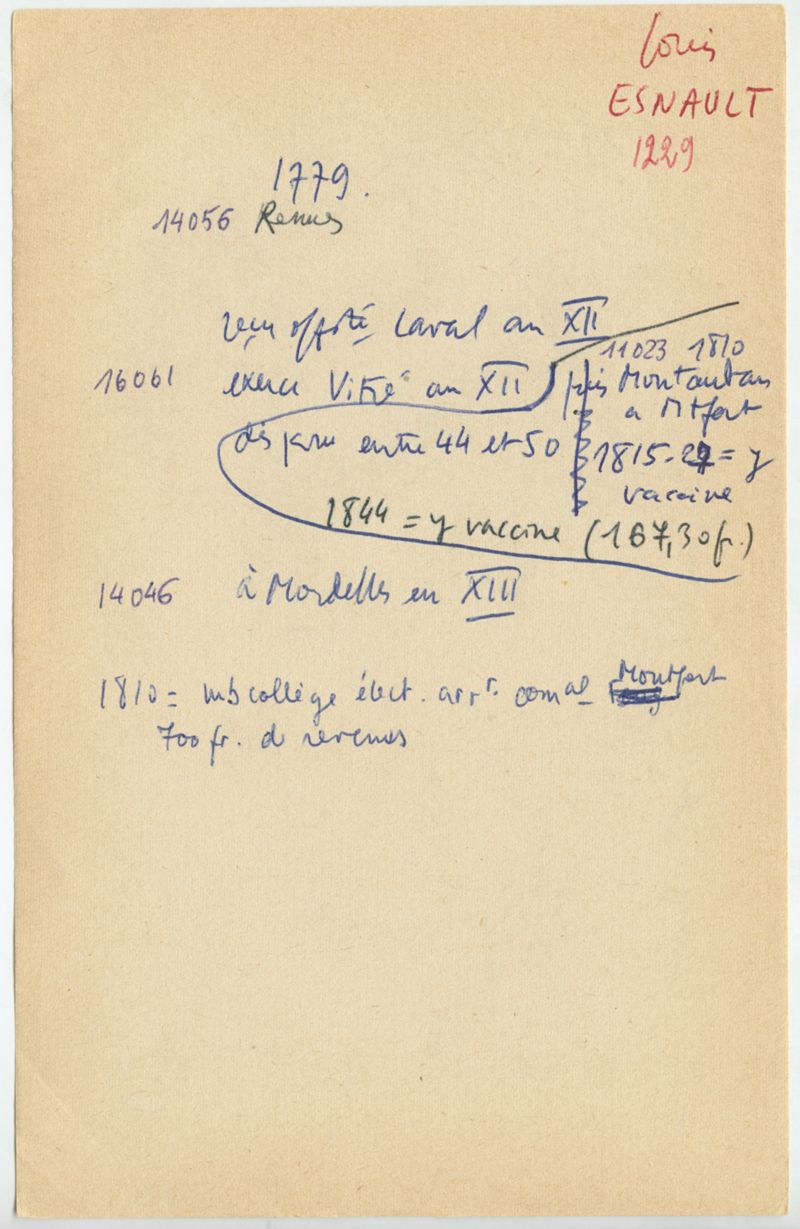 Louis
ESNAULT
1229
1779.
14056 Rennes
reçu offté Laval an XII
16061 exerce Vitré an XII puis Montauban
11023 1810
a Mtfort
disparu entre 44 et 50
1815-27 = y
vaccine
1844 = y vaccine (167,30 fr.)
14046 à Mordelles en XIII
1810 = mb collège élect. arrt. comal Montfort
700 fr. de revenus